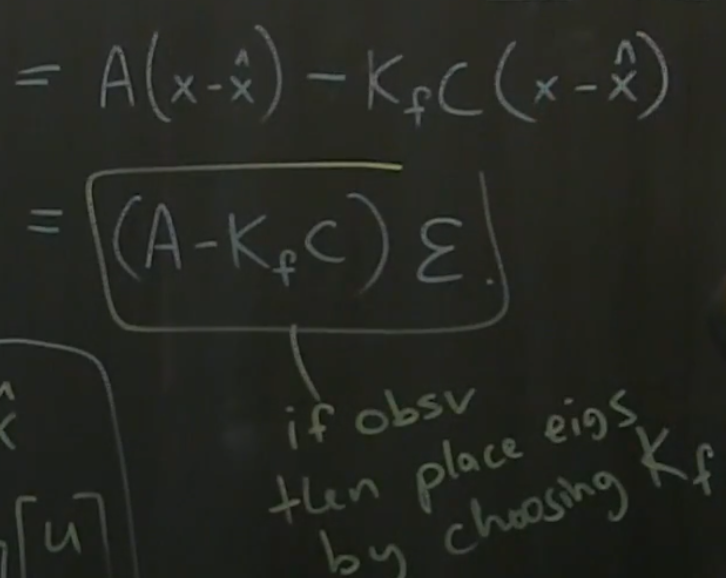 = A(x-x̂) - K_f C (x-x̂)
= (A-K_f C) ε.
if obsv
then place eigs
by choosing K_f
x̂
[u]